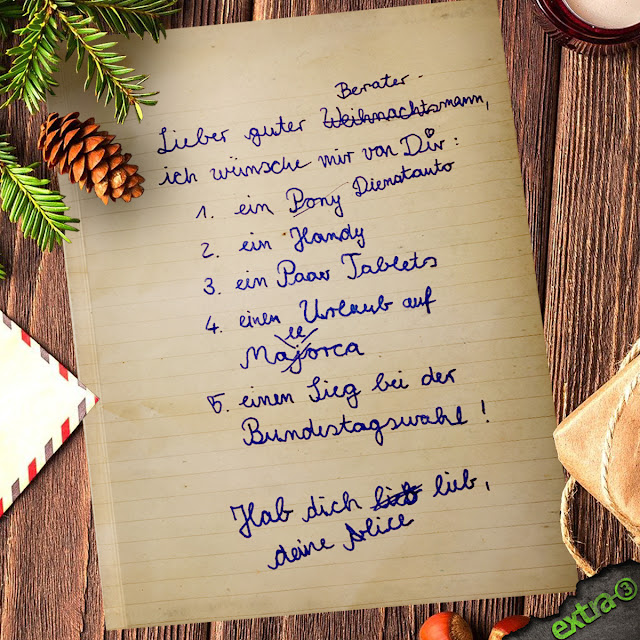 Berater-
Lieber guter Weihnachtsmann,
ich wünsche mir von Dir:
1. ein Pony Dienstauto
2. ein Handy
3. ein Paar Tablets
4. einen Urlaub auf
ll
Majorca
5. einen Sieg bei der
Bundestagswahl!
Hab dich lieb,
deine Alice
extra 3